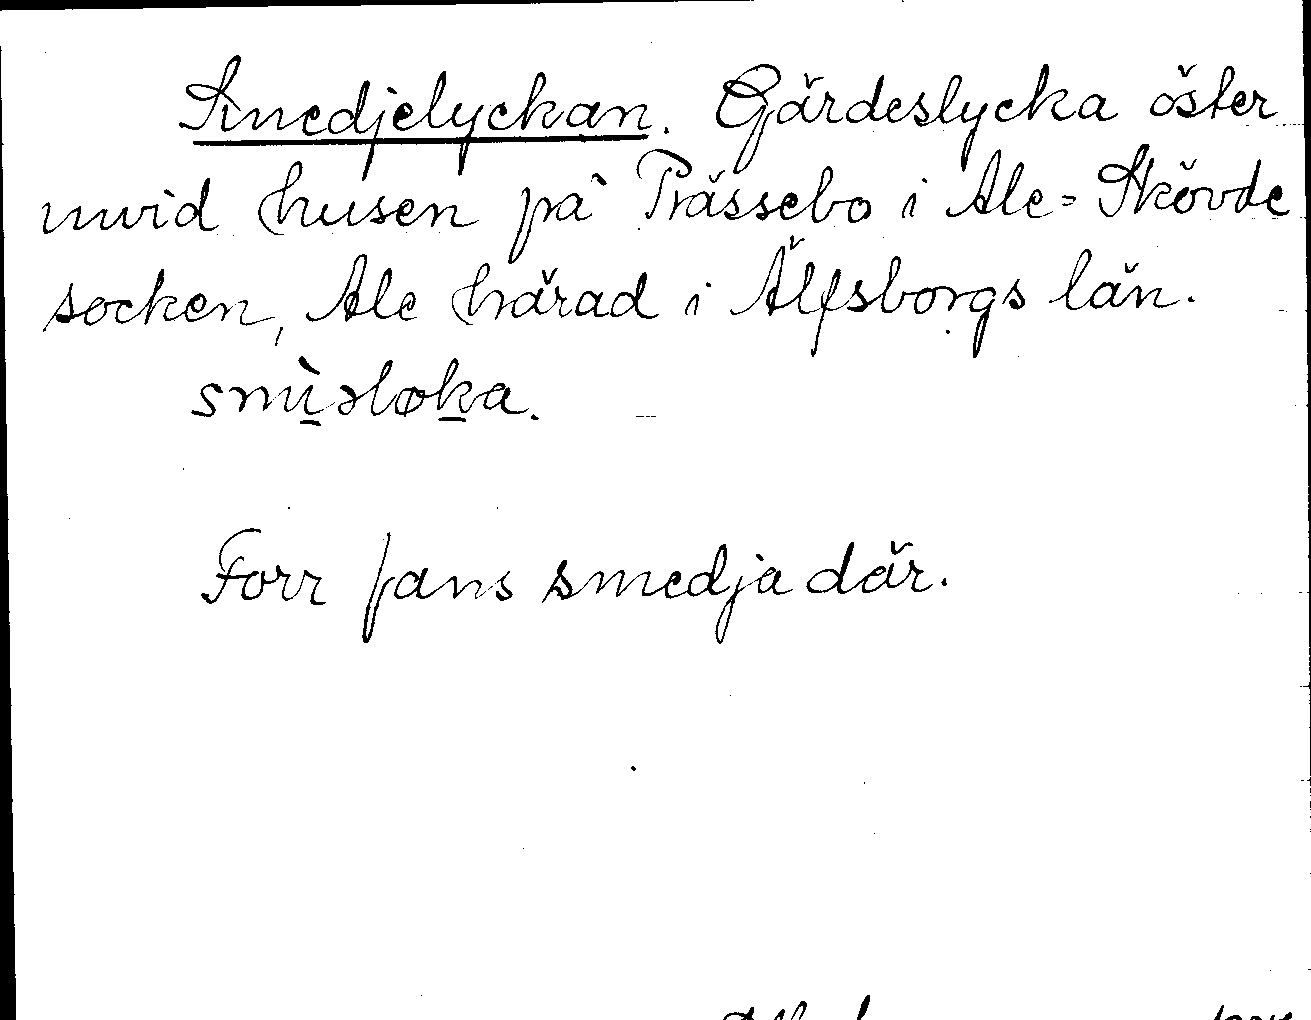 Smedjelyckan. Gärdeslycka öster
invid husen på Prässebo i Ale-Skövde
socken, Ale härad i Älfsborgs län.
smìsløka.
Förr fans smedja där.